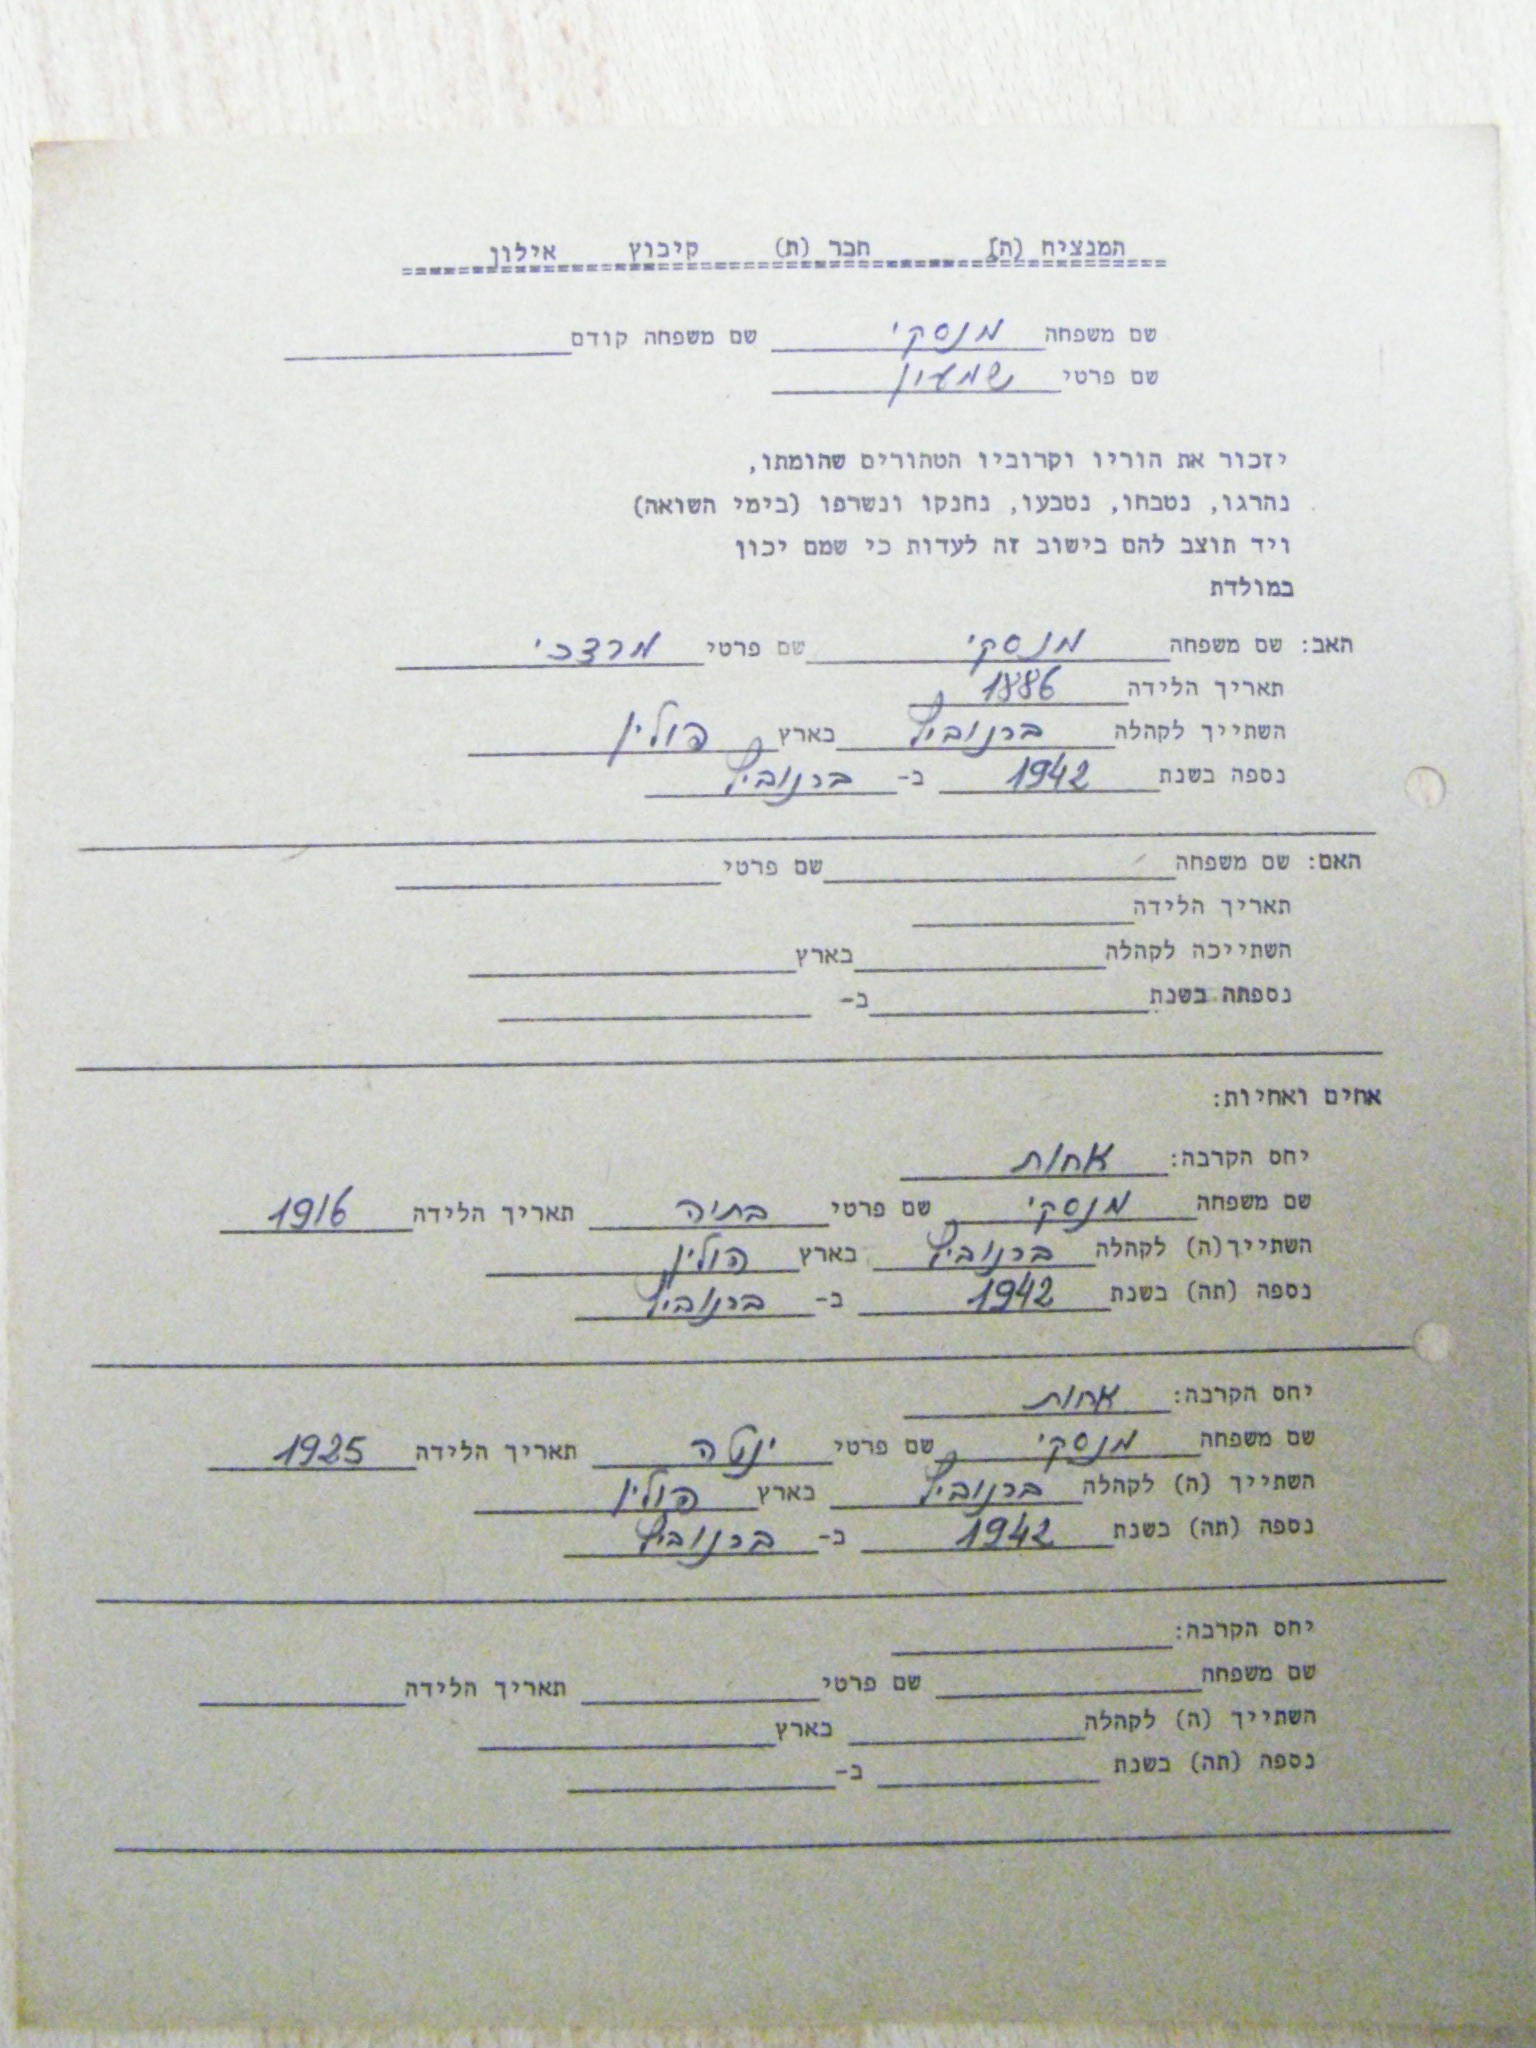 המנציח (ה) חבר (ת) קיבוץ אילון
שם משפחה מנסקי שם משפחה קודם
שם פרטי שמעון
יזכור את הוריו וקרוביו הטהורים שהומתו,
נהרגו, נטבחו, נטבעו, נחנקו ונשרפו (בימי השואה)
ויד תוצב להם בישוב זה לעדות כי שמם יכון
במולדת
האב: שם משפחה מנסקי שם פרטי מרדכי
תאריך הלידה 1886
השתייך לקהלה ברנוביץ בארץ פולין
נספה בשנת 1942 ב- ברנוביץ
האם: שם משפחה שם פרטי
תאריך הלידה
השתייכה לקהלה בארץ
נספתה בשנת ב-
אחים ואחיות:
יחס הקרבה: אחות
שם משפחה מנסקי שם פרטי בתיה תאריך הלידה 1916
השתייך(ה) לקהלה ברנוביץ בארץ פולין
נספה (תה) בשנת 1942 ב- ברנוביץ
יחס הקרבה: אחות
שם משפחה מנסקי שם פרטי ינטה תאריך הלידה 1925
השתייך (ה) לקהלה ברנוביץ בארץ פולין
נספה (תה) בשנת 1942 ב- ברנוביץ
יחס הקרבה:
שם משפחה שם פרטי תאריך הלידה
השתייך (ה) לקהלה בארץ
נספה (תה) בשנת ב-